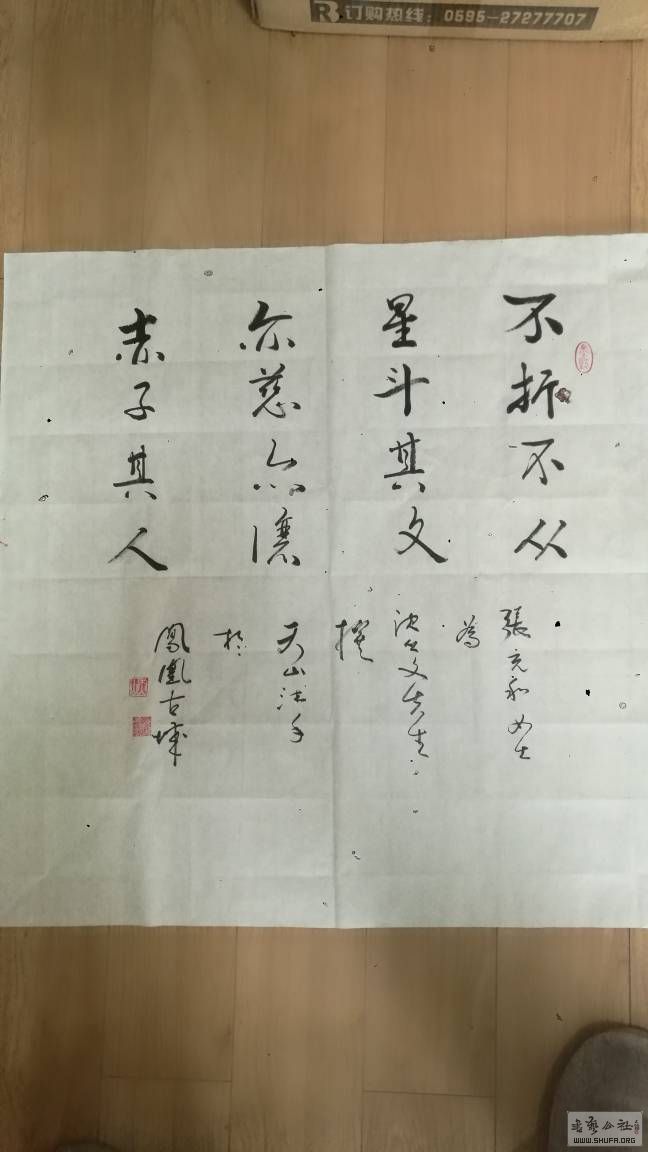 订购热线：0595-27277707
不折不从
星斗其文
亦慈亦讓
赤子其人
張充和女士
為
沈从文先生
撰
天山
於
鳳凰古城
书艺公社
WWW.SHUFA.ORG